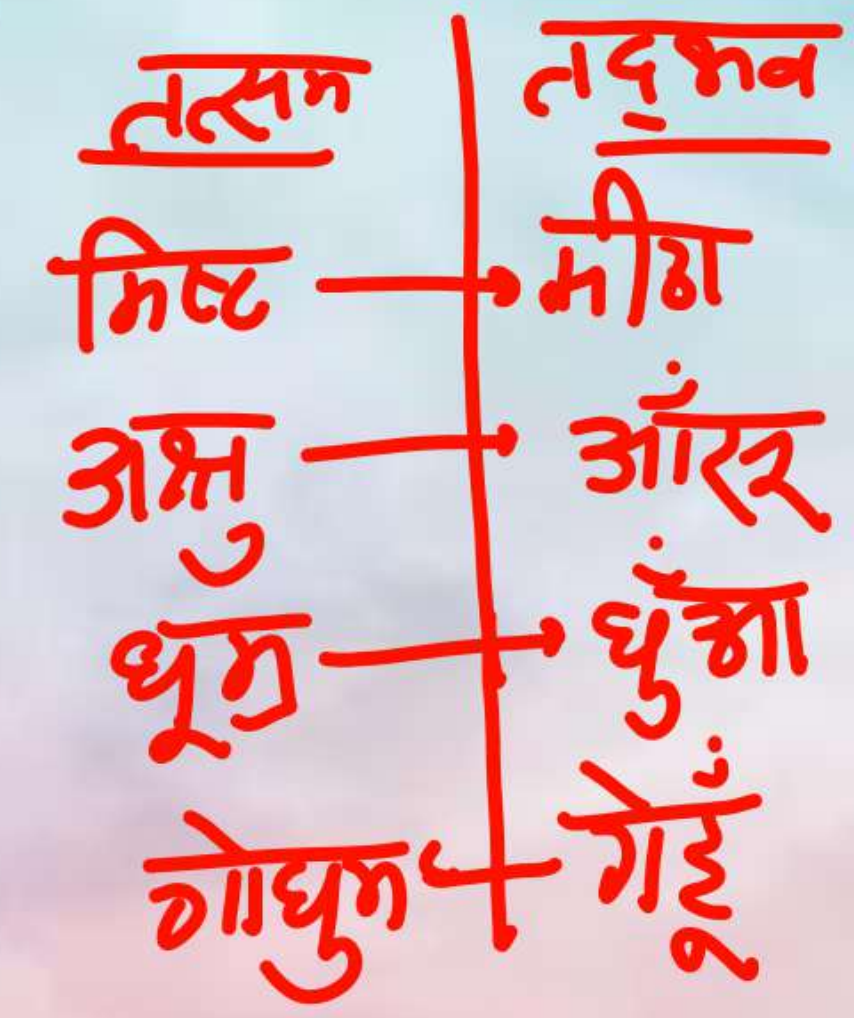 तत्सम तद्भव
मिष्ट मीठा
अश्रु आँसू
धूम्र धुँआ
गोधुम गेहूँ